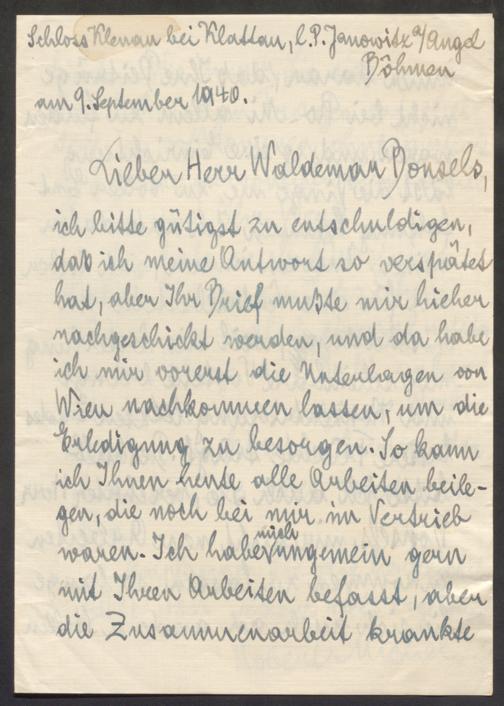 Schloss Klenau bei Klattau, l.P. Janowitz a/Angel
Böhmen
am 9. September 1940.
Lieber Herr Waldemar Bonsels,
ich bitte gütigst zu entschuldigen,
daß ich meine Antwort so verspätet
hat, aber Ihr Brief mußte mir hieher
nachgeschickt werden, und da habe
ich mir vorerst die Unterlagen von
Wien nachkommen lassen, um die
Erledigung zu besorgen. So kann
ich Ihnen heute alle Arbeiten beile-
gen, die noch bei mir im Vertrieb
waren. Ich habe mich ungemein gern
mit Ihren Arbeiten befasst, aber
die Zusammenarbeit krankte